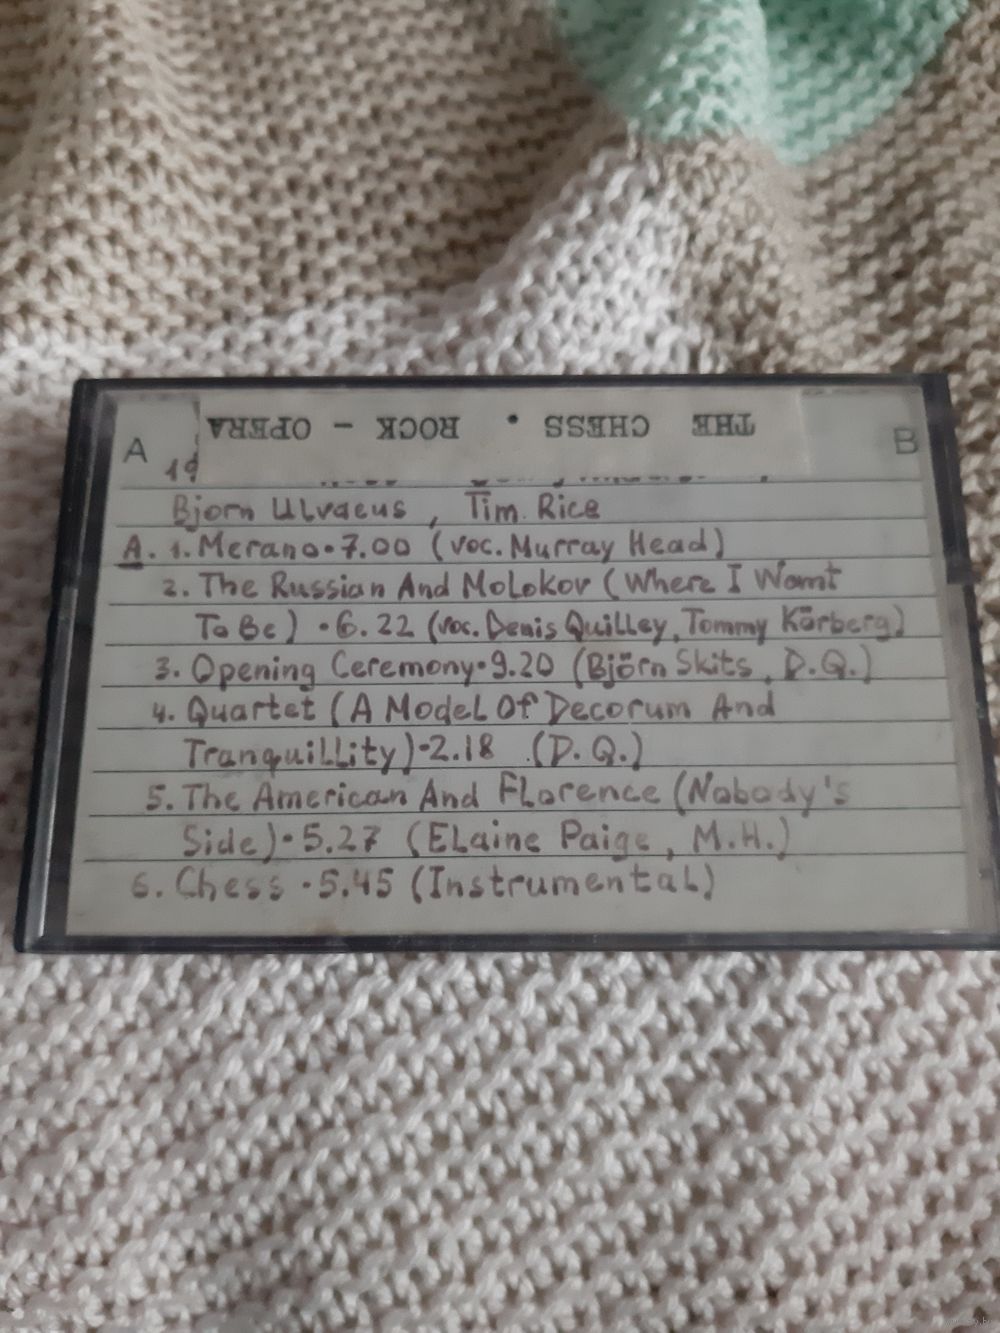 THE CHESS. ROCK - OPERA
A B
19
Bjorn Ulvaeus, Tim Rice
A. 1. Merano • 7.00 (voc. Murray Head)
2. The Russian And Molokov (Where I Want
To Be) • 6.22 (voc. Denis Quilley, Tommy Körberg)
3. Opening Ceremony • 9.20 (Björn Skits, D.Q.)
4. Quartet (A Model Of Decorum And
Tranquillity) • 2.18 (D.Q.)
5. The American And Florence (Nobody's
Side) • 5.27 (Elaine Paige, M.H.)
6. Chess • 5.45 (Instrumental)